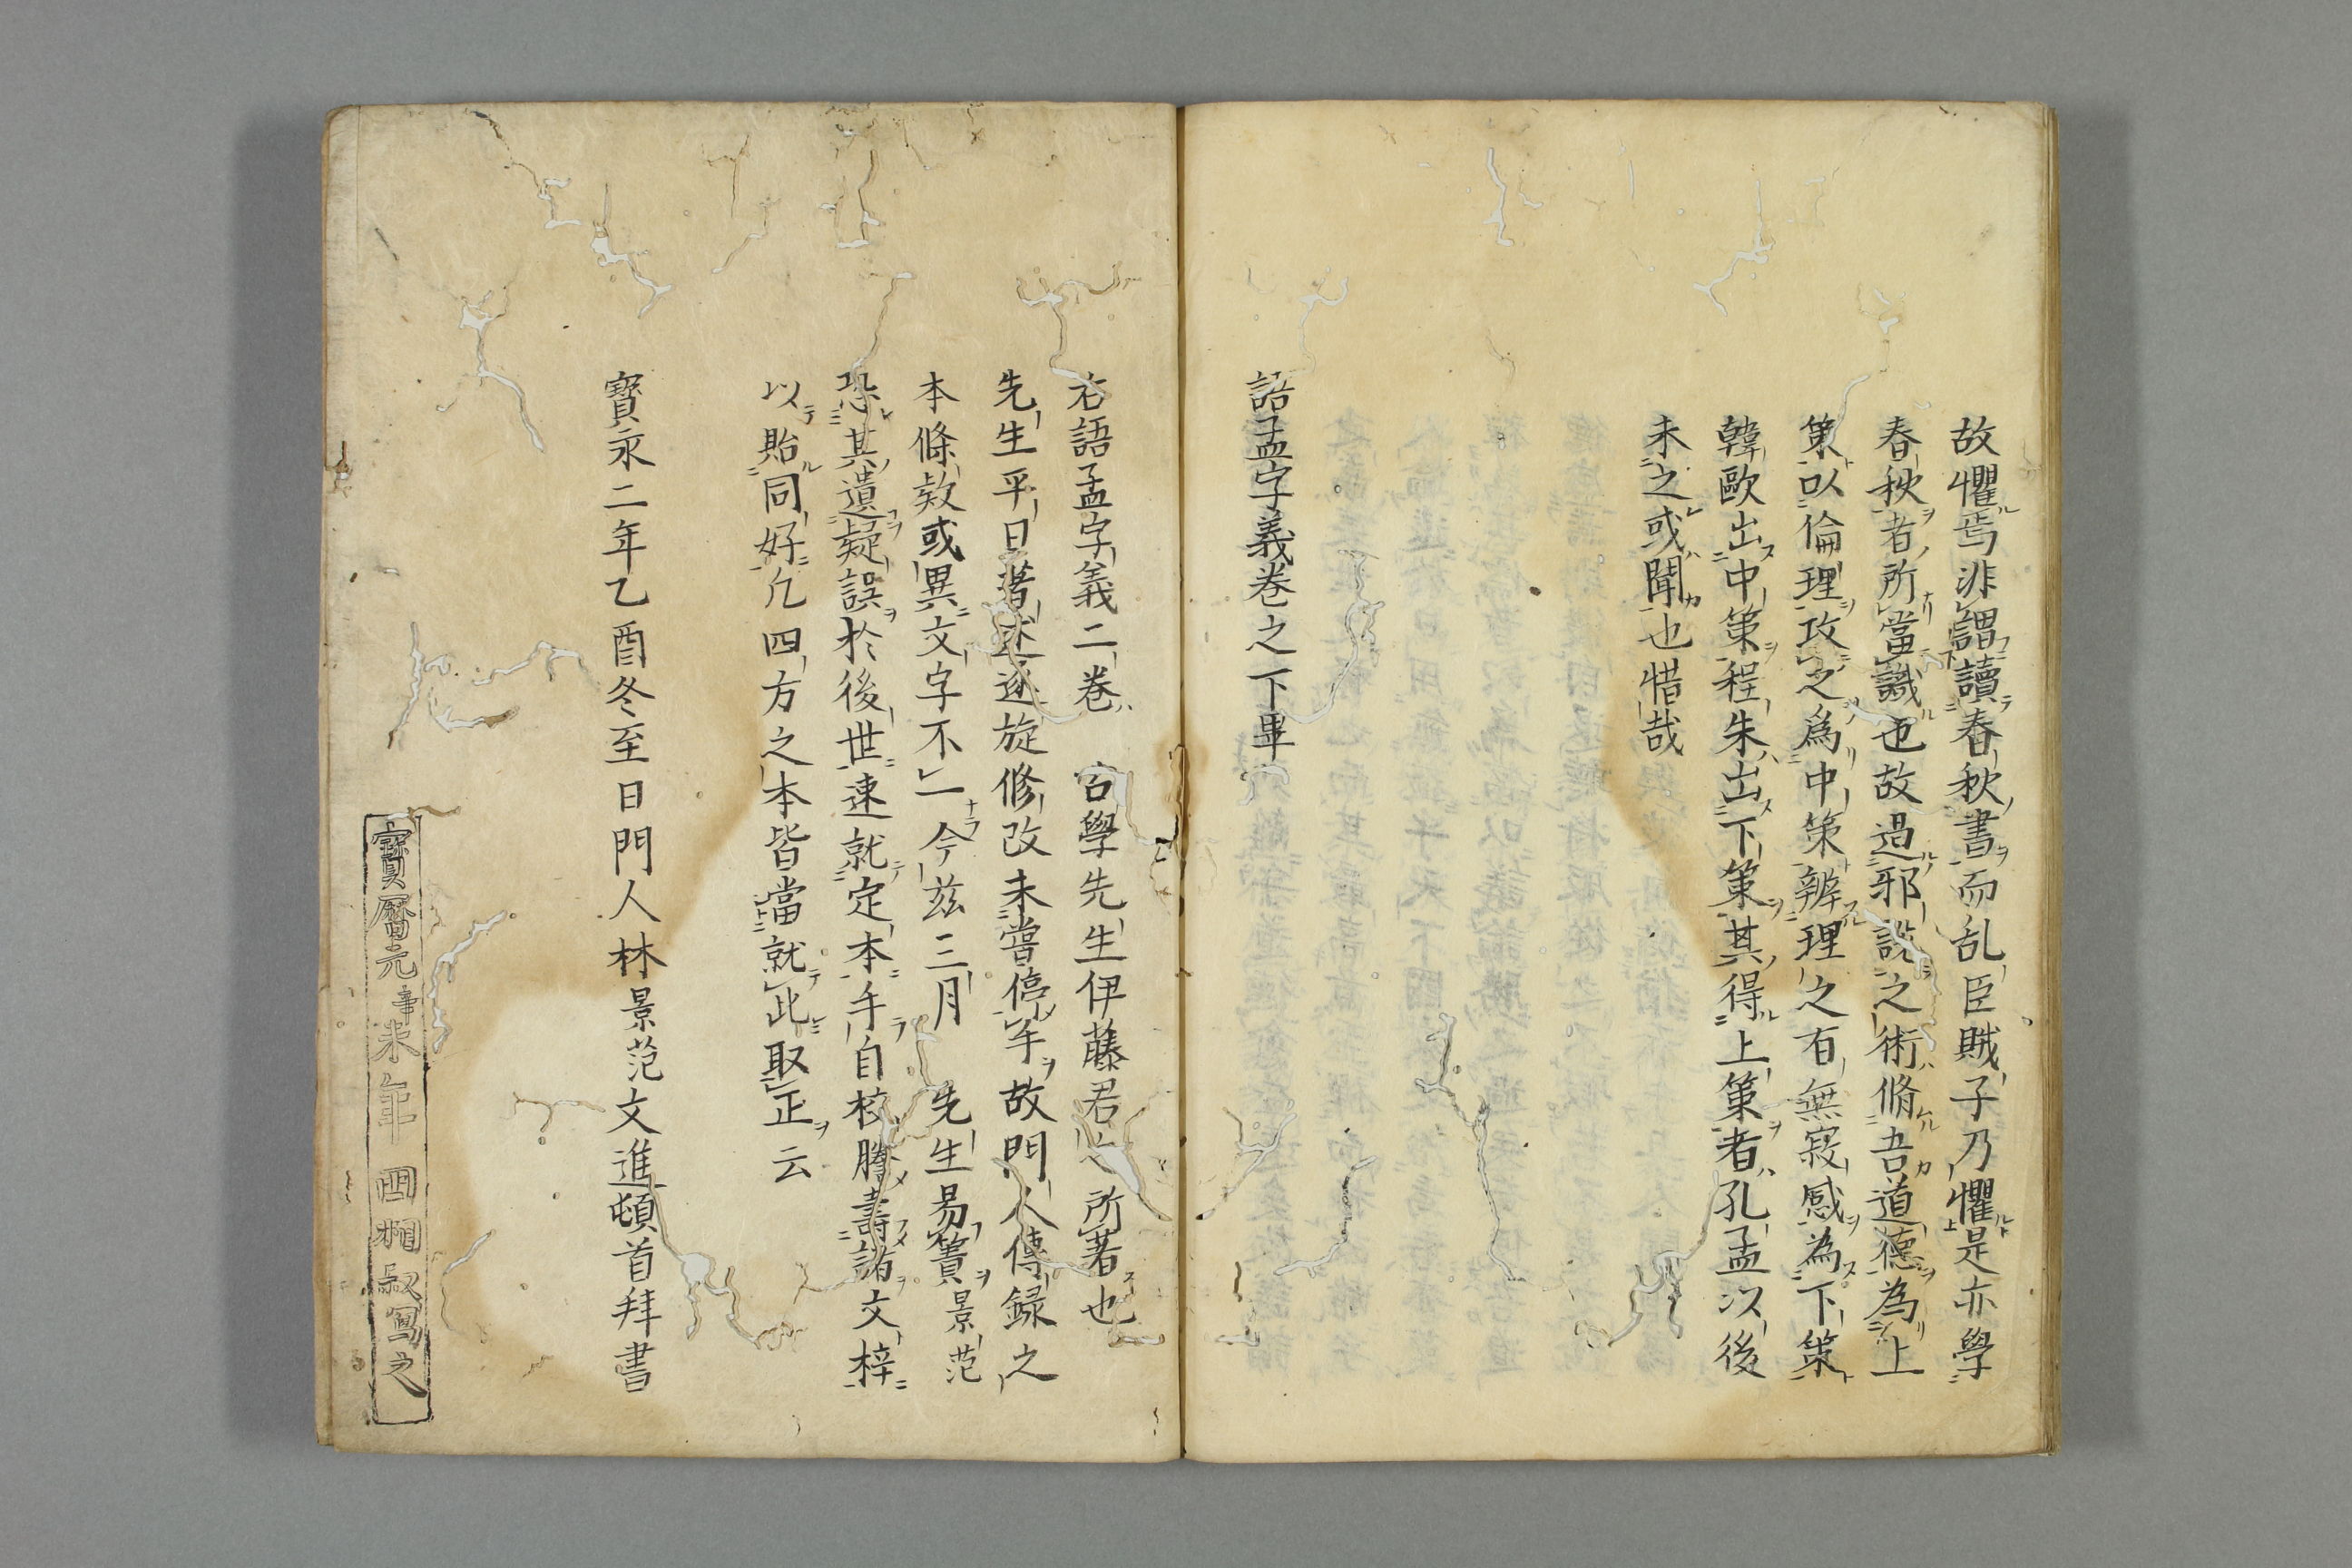 故懼焉非謂讀春秋書而乱臣賊子乃懼是亦學
春秋者所當識也故過邪説之術脩吾道德為上
策以倫理攻之爲中策辨理之有無寂感為下策
韓歐出中策程朱出下策其得上策者孔孟以後
未之或聞也惜哉
語孟字義巻之下畢
右語孟字義二巻 古學先生伊藤君之所著也
先生平日著述逐旋修改未嘗停年故門人傳録之
本條欵或異文字不一今茲三月 先生易簀景范
恐其遺疑誤於後世速就定本手自校謄壽諸文梓
以貽同好凢四方之本皆當就此取正云
寳永二年乙酉冬至日門人林景范文進頓首拜書
寳曆元辛未年 四 叔寫之